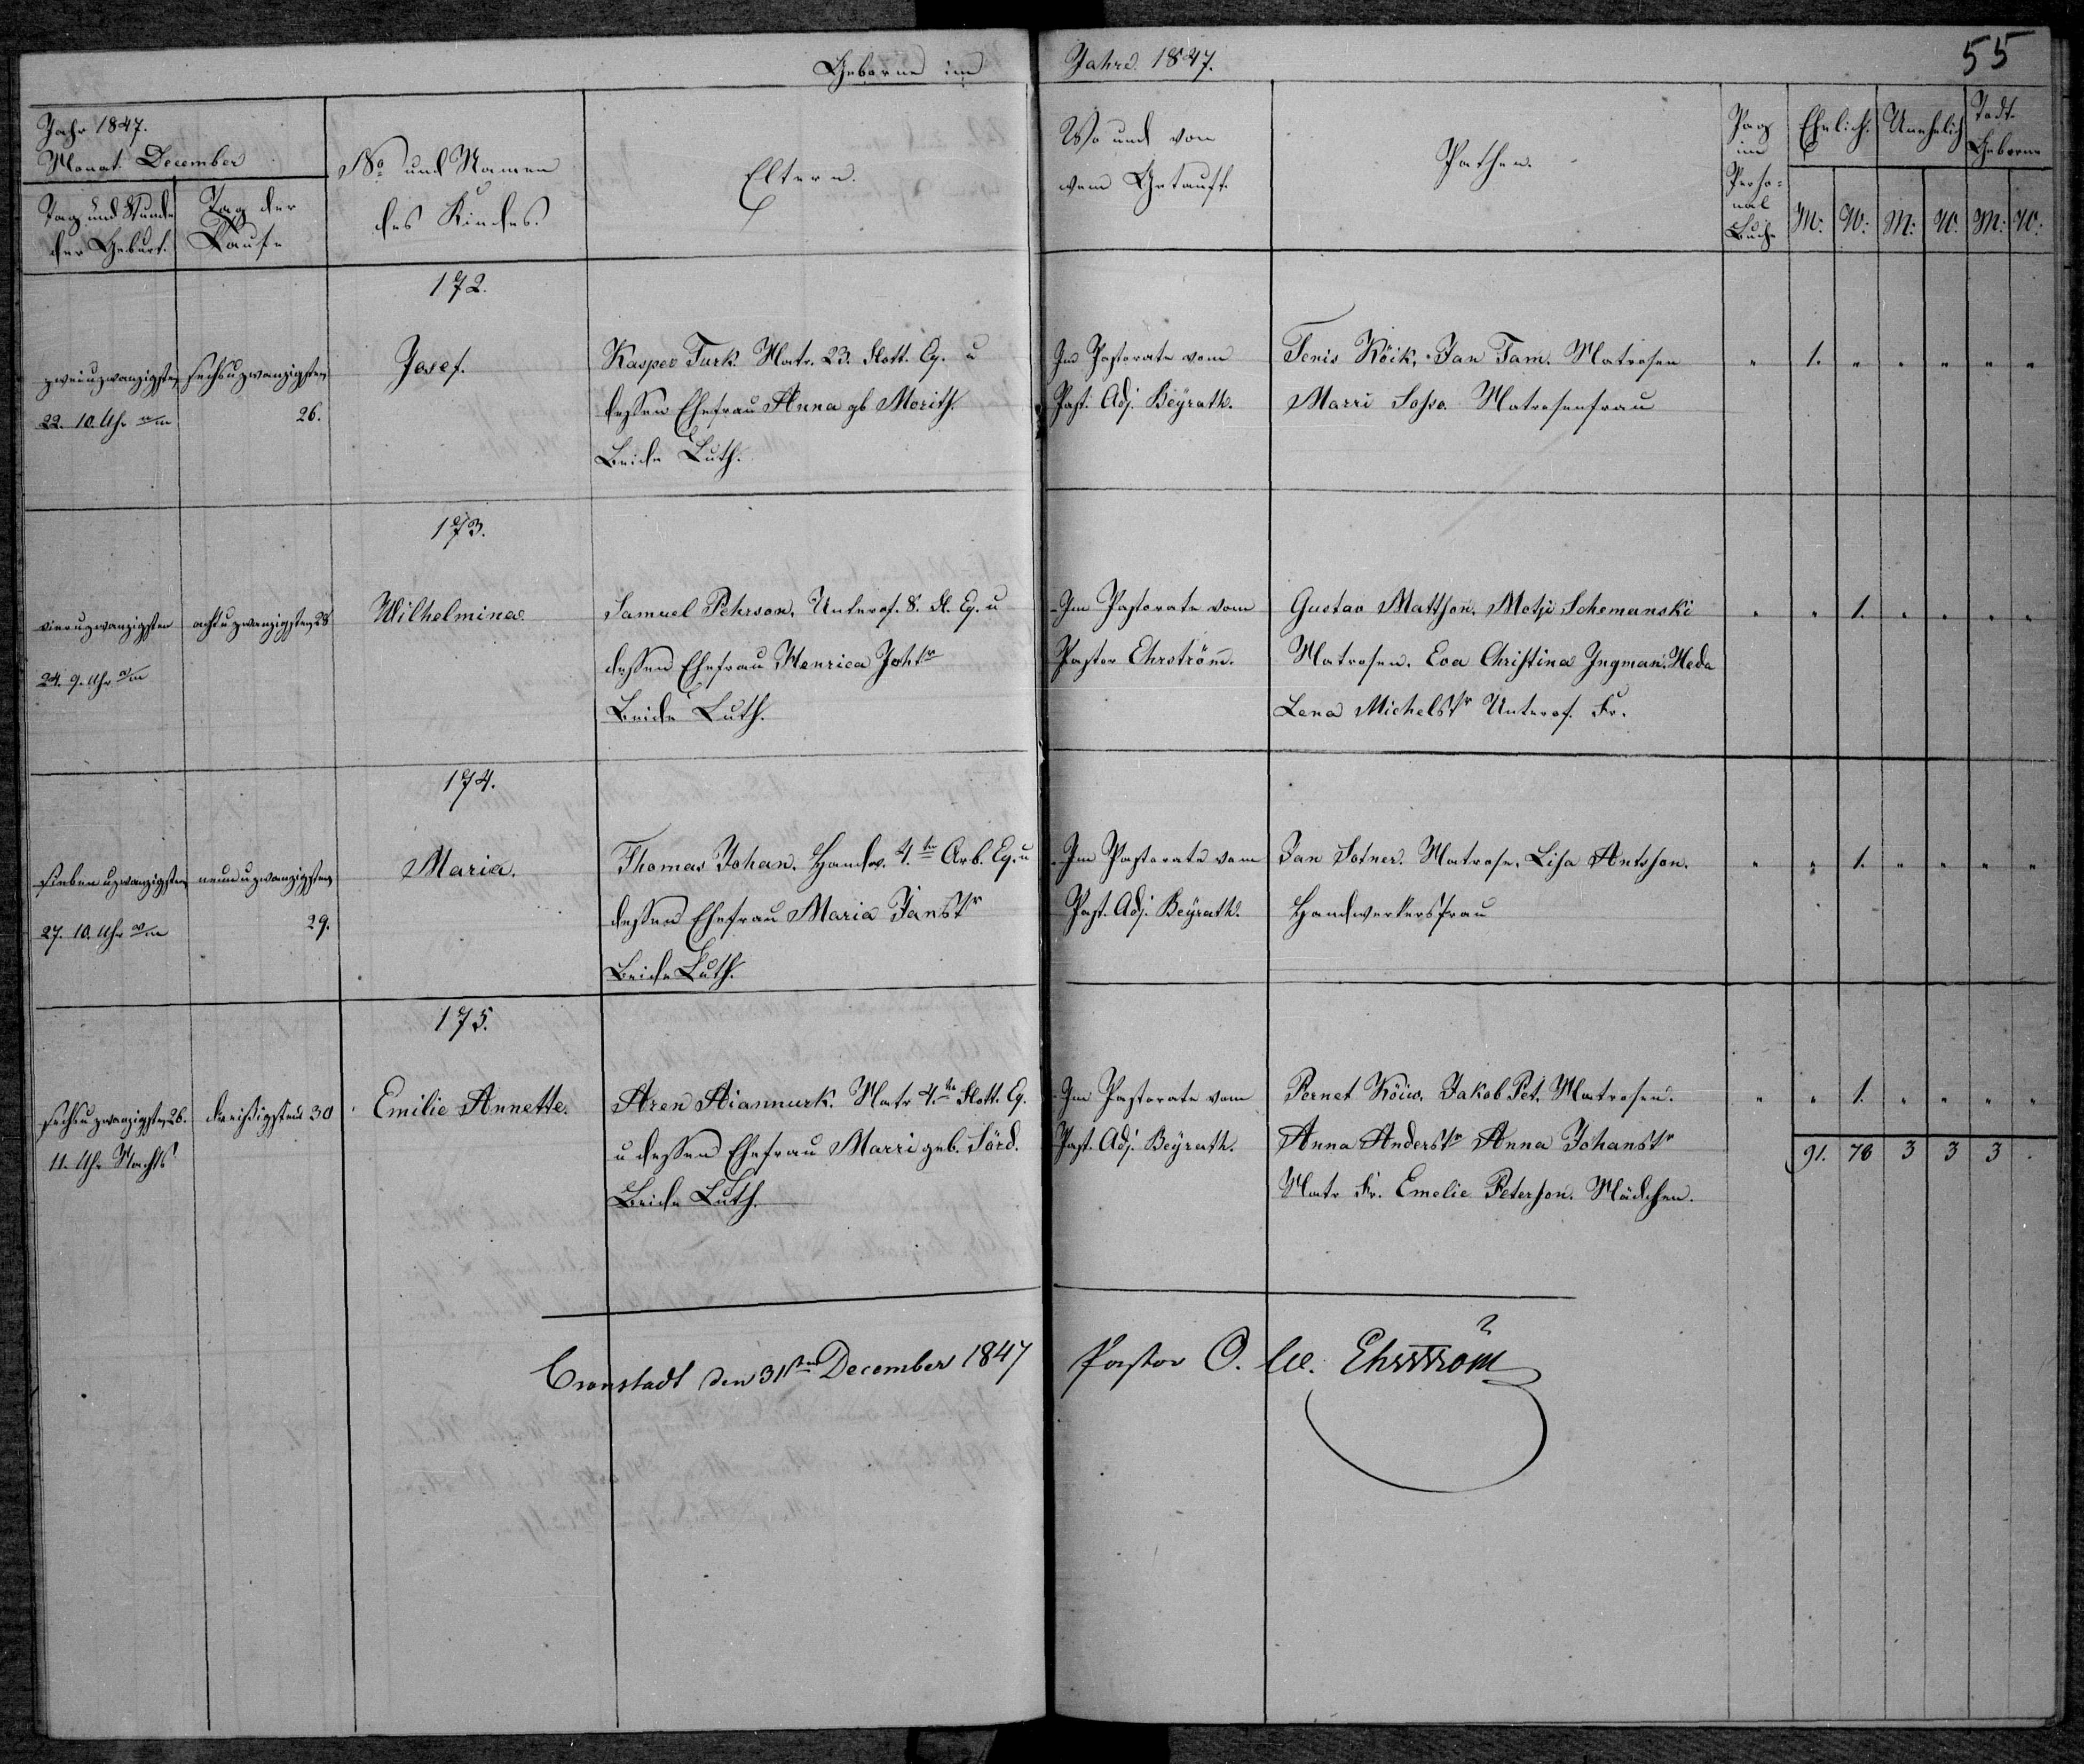 Geborne im Jahre 1847.
55
Jahr 1847.
Monat December
Tag und Stunde der Geburt.
Tag der Taufe
No und Namen des Kindes.
Eltern.
Wo und von wem Getauft.
Pathen.
Pag im Perso=nal Buche
Ehelich. Unehelich Todt-Geborne
M: W: M: W: M: W:
172.
zweiuzwanzigsten sechsuzwanzigsten Josef. Kasper Turk. Matr. 23. Flott. Eq. u Im Pastorate vom Tenis Köik, Jan Tam. Matrosen " 1. " " " " "
22. 10. Uhr 26. dessen Ehefrau Anna gb Morith. Past. Adj. Beÿrath. Marri Matrosenfrau
Beide Luth.
173.
vieruzwanzigsten achtuzwanzigsten 28 Wilhelmina Samuel Pehrson, Unterof. 8. Fl. Eq. u Im Pastorate vom Gustav Mattson. Motsi Schemanski " " 1. " " " "
24. 9. Uhr dessen Ehefrau Henrica Johtr Pastor Ehrström. Matrosen. Eva Christina Ingman. Heda
Beide Luth. Lena Michelstr Unterof. Fr.
174.
siebenuzwanzigsten neunuzwanzigsten Maria. Thomas Johan. Handw. 4.te Arb. Eq. u Im Pastorate vom Jan Sotner. Matrose. Lisa Antsson. " " 1. " " " "
27. 10. Uhr 29. dessen Ehefrau Maria Janstr Past. Adj. Beÿrath. Handwerkersfrau
Beide Luth.
175.
sechsuzwanzigsten 26. dreißigsten 30 Emilie Annette. Aren Aiannurk. Matr 4.te Flott. Eq. Im Pastorate vom Pernet Köiw. Jakob Pet. Matrosen. " " 1. " " " "
11. Uhr Nachts u dessen Ehefrau Marri geb. Sörd. Past. Adj. Beÿrath. Anna Anderstr Anna Johanstr 91. 78 3 3 3 .
Beide Luth. Matr Fr. Emelie Peterson. Mädchen.
Cronstadt den 31ten December 1847 Pastor O. Ehrström